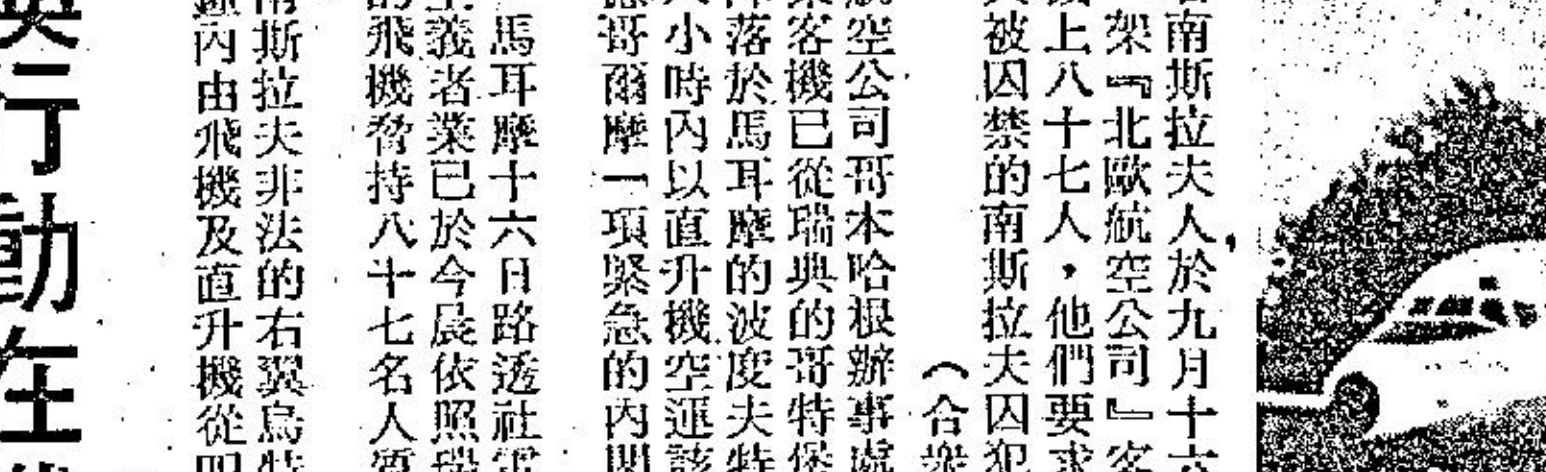 南斯拉夫人於九月十六
架『北歐航空公司』客
上八十七人，他們要求
被囚禁的南斯拉夫囚犯
（合衆
航空公司哥本哈根辦事處
乘客機已從瑞典的哥特堡
降落於馬耳摩的波度夫特
小時內以直升機空運該
哥爾摩一項緊急的內閣
馬耳摩十六日路透社電
主義者業已於今晨依照瑞
的飛機脅持八十七名人質
南斯拉夫非法的右翼烏特
鐘內由飛機及直升機從
行動在